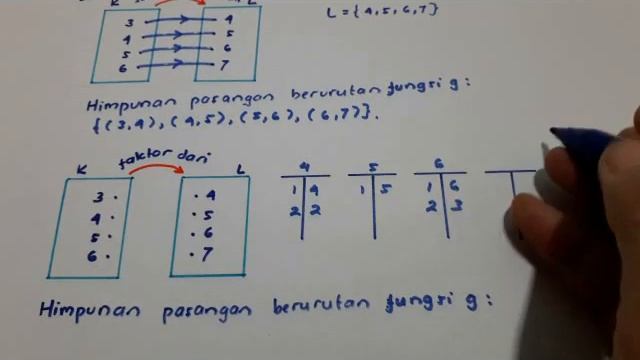 K L
L = {4,5,6,7}
3 4
4 5
5 6
6 7
Himpunan pasangan berurutan fungsi g:
{(3,4), (4,5), (5,6), (6,7)}.
faktor dari
K L
3 · · 4
4 · · 5
5 · · 6
6 · · 7
4 5 6
1 4 1 5 1 6
2 2 2 3
Himpunan pasangan berurutan fungsi g: